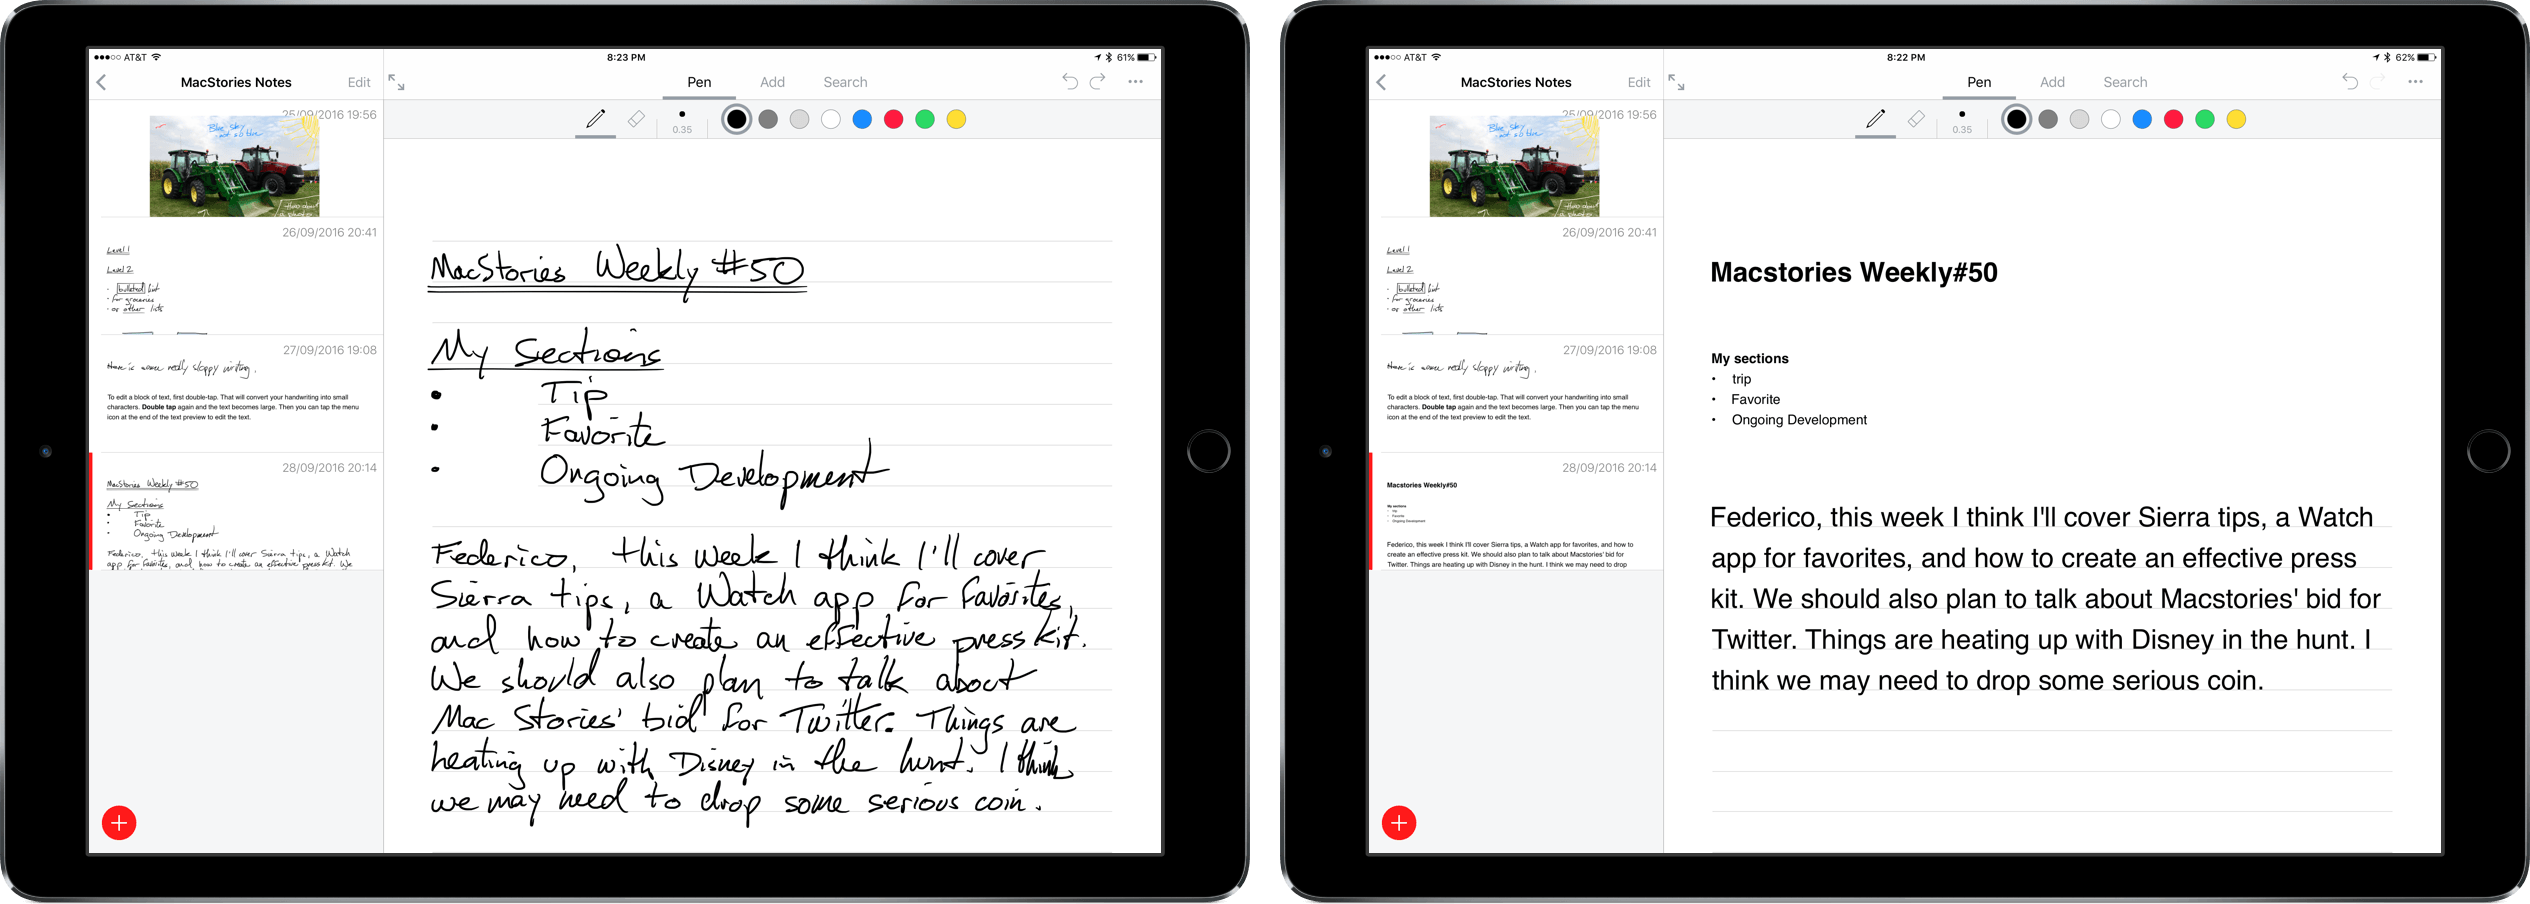 AT&T
8:23 PM
61%
MacStories Notes
Edit
Pen
Add
Search
0.35
25/09/2016 19:56
Blue sky
not so blue
26/09/2016 20:41
Level 1
Level 2
• bulleted list
• for groceries
• or other lists
27/09/2016 19:08
Here is some really sloppy writing.
To edit a block of text, first double-tap. That will convert your handwriting into small
characters. Double tap again and the text becomes large. Then you can tap the menu
icon at the end of the text preview to edit the text.
28/09/2016 20:14
MacStories Weekly #50
My Sections
• Tip
• Favorite
• Ongoing Development
Federico, this week I think I'll cover Sierra tips, a Watch
app for favorites, and how to create an effective press kit. We
MacStories Weekly #50
My Sections
• Tip
• Favorite
• Ongoing Development
Federico, this week I think I'll cover
Sierra tips, a Watch app for favorites,
and how to create an effective press kit.
We should also plan to talk about
Mac Stories' bid for Twitter. Things are
heating up with Disney in the hunt. I think
we may need to drop some serious coin.
AT&T
8:22 PM
62%
MacStories Notes
Edit
Pen
Add
Search
0.35
25/09/2016 19:56
Blue sky
not so blue
26/09/2016 20:41
Level 1
Level 2
• bulleted list
• for groceries
• or other lists
27/09/2016 19:08
Here is some really sloppy writing.
To edit a block of text, first double-tap. That will convert your handwriting into small
characters. Double tap again and the text becomes large. Then you can tap the menu
icon at the end of the text preview to edit the text.
28/09/2016 20:14
Macstories Weekly#50
My sections
• trip
• Favorite
• Ongoing Development
Federico, this week I think I'll cover Sierra tips, a Watch app for favorites, and how to
create an effective press kit. We should also plan to talk about Macstories' bid for
Twitter. Things are heating up with Disney in the hunt. I think we may need to drop
Macstories Weekly#50
My sections
• trip
• Favorite
• Ongoing Development
Federico, this week I think I'll cover Sierra tips, a Watch
app for favorites, and how to create an effective press
kit. We should also plan to talk about Macstories' bid for
Twitter. Things are heating up with Disney in the hunt. I
think we may need to drop some serious coin.